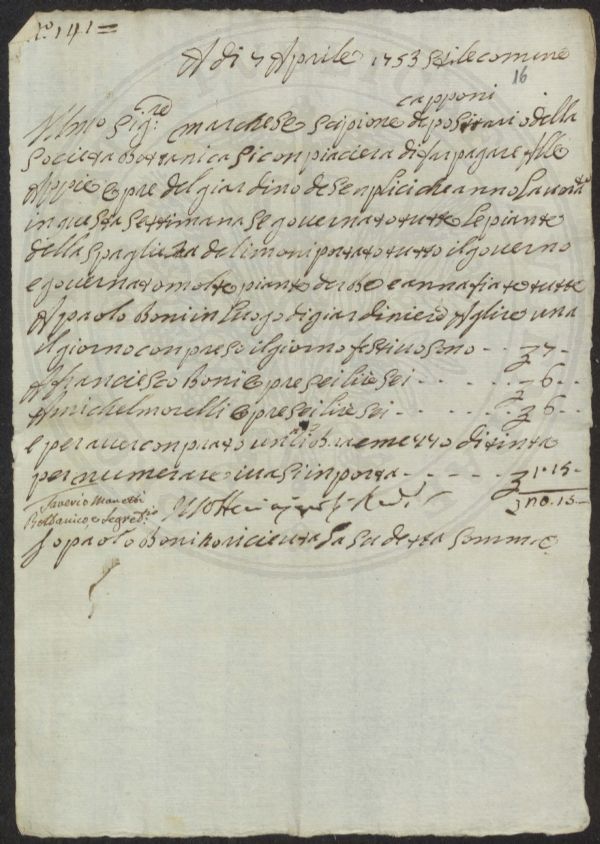 N.o 141=
A di 7 Aprile 1753 stile comune
16
capponi
Illmo Sig.re marchese Scipione depositario della
Societta Bottanica Si conpiacera di far pagare Alle
Appie opre del giardino de Senplici che anno lavorato
in questa Settimana Se governato tutte le piante
della Spagliera de limoni portato tutto il governo
e governato molte piante derbe e annafiate tutte
A paolo Boni in luogo di giardiniero A lire una
il giorno conpreso il giorno festivo sono - - 7 -
A franciesco Boni opre sei lire sei - - - - - 6 - -
A michel morelli opre sei lire sei - - - - - 6 - -
e per aver conprato una libra e mezzo di tinta
per numerare i vasi inporta - - - - - - 1.15 -
Saverio Manetti
Bottanico, e Segret.io
20.15 -
Io paolo Boni o ricieuta la Su detta Somma